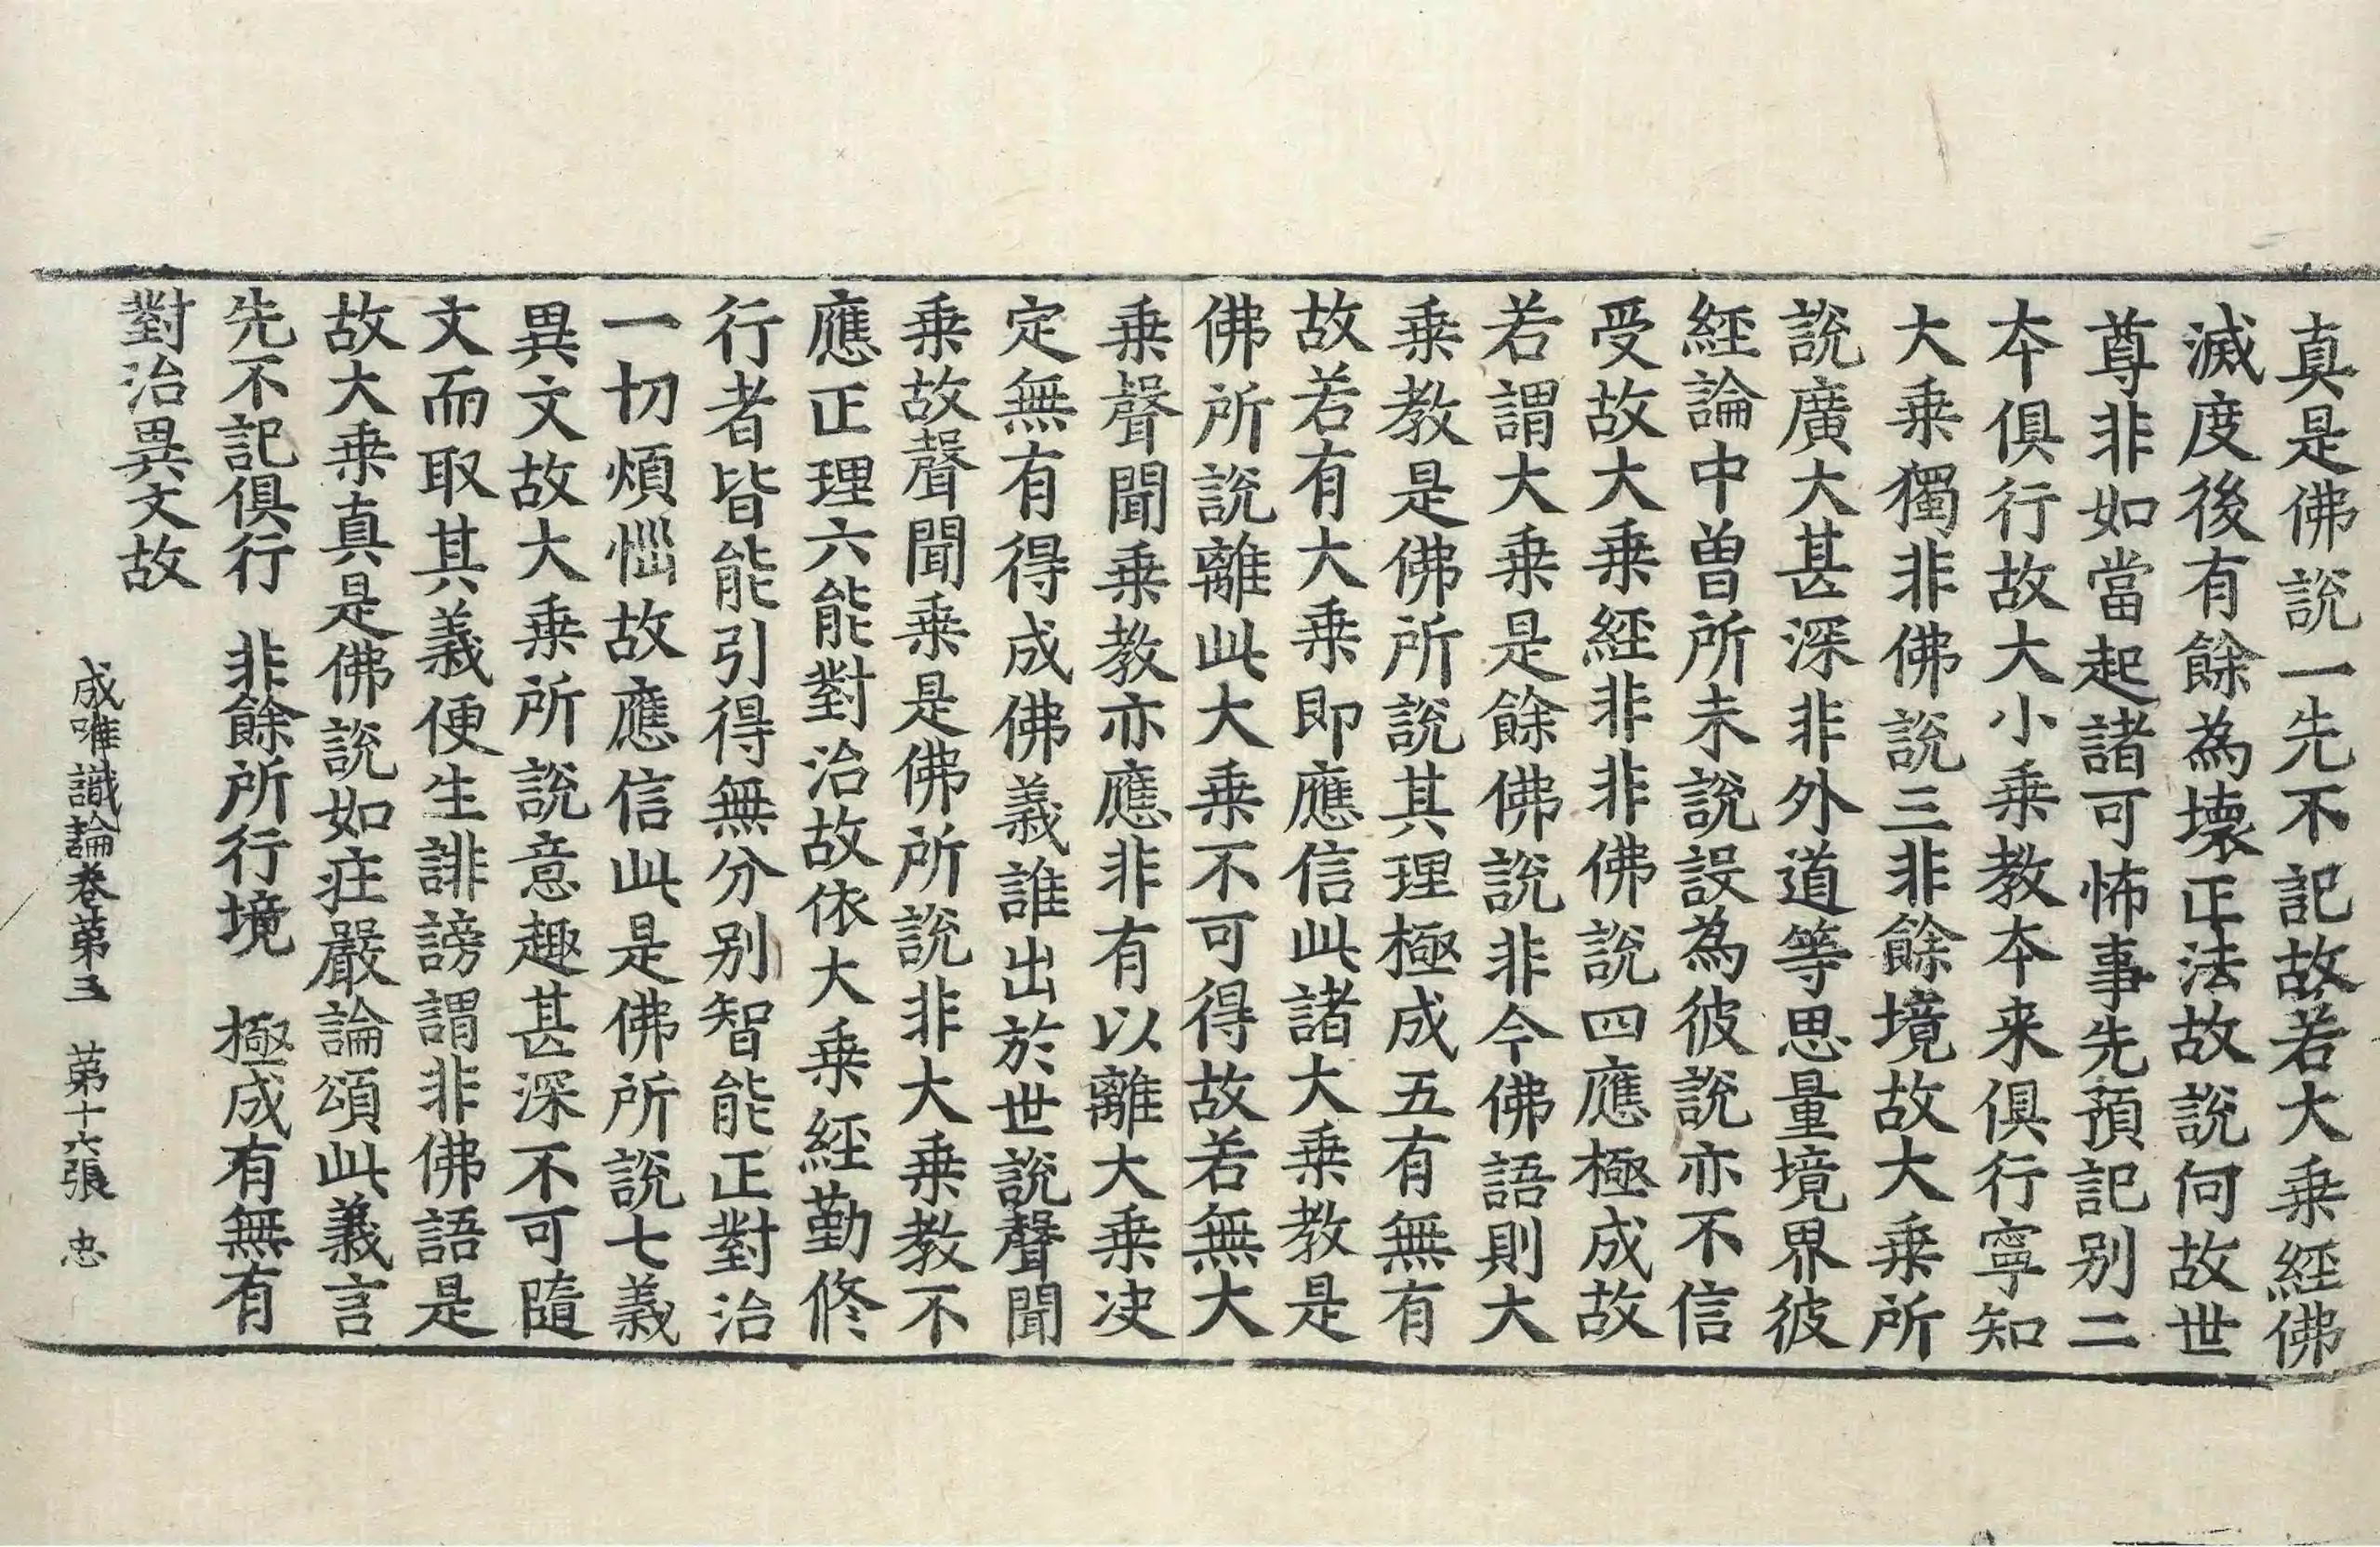 真是佛說一先不記故若大乗經佛
滅度後有餘為壞正法故說何故世
尊非如當起諸可怖事先預記别二
本俱行故大小乗教本来俱行寧知
大乗獨非佛說三非餘境故大乗所
說廣大甚深非外道等思量境界彼
經論中曽所未說設為彼說亦不信
受故大乗經非非佛說四應極成故
若謂大乗是餘佛說非今佛語則大
乗教是佛所說其理極成五有無有
故若有大乗即應信此諸大乗教是
佛所說離此大乗不可得故若無大
乗聲聞乗教亦應非有以離大乗决
定無有得成佛義誰出於世說聲聞
乗故聲聞乗是佛所說非大乗教不
應正理六能對治故依大乗經勤修
行者皆能引得無分别智能正對治
一切煩惱故應信此是佛所說七義
異文故大乗所說意趣甚深不可隨
文而取其義便生誹謗謂非佛語是
故大乗真是佛說如荘嚴論頌此義言
先不記俱行　非餘所行境　極成有無有
對治異文故
成唯識論卷第三　第十六張　忠